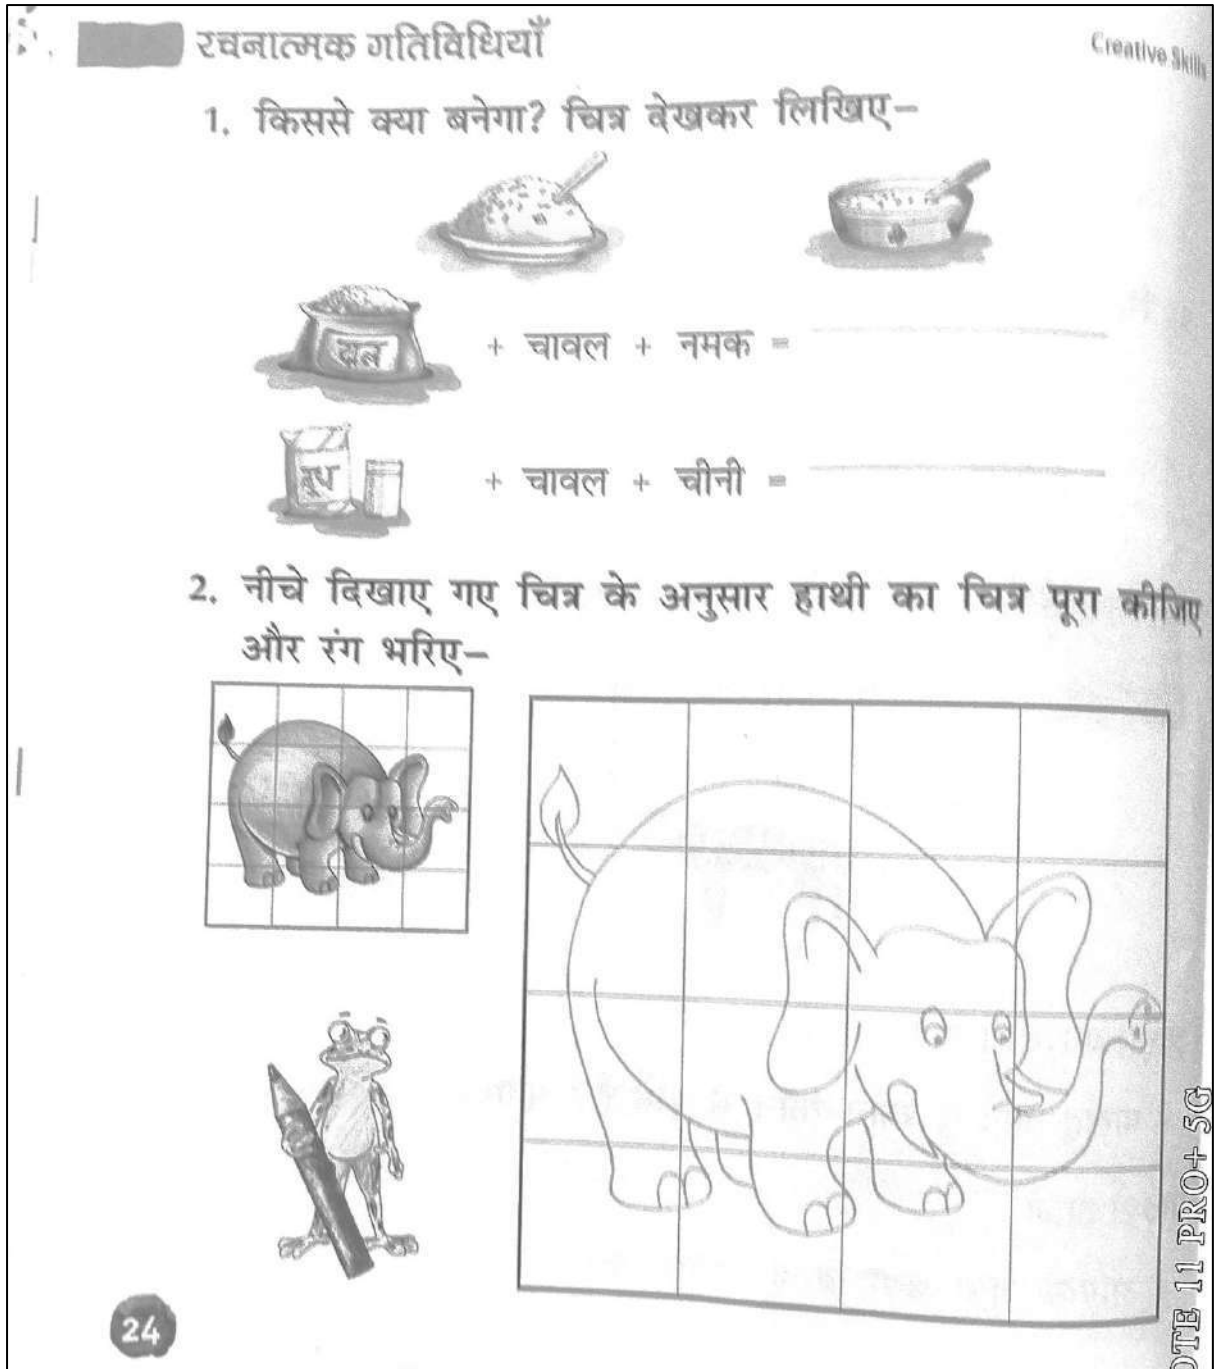 रचनात्मक गतिविधियाँ
Creative Skills
1. किससे क्या बनेगा? चित्र देखकर लिखिए–
दाल + चावल + नमक =
दूध + चावल + चीनी =
2. नीचे दिखाए गए चित्र के अनुसार हाथी का चित्र पूरा कीजिए
और रंग भरिए–
24
OTE 11 PRO+ 5G